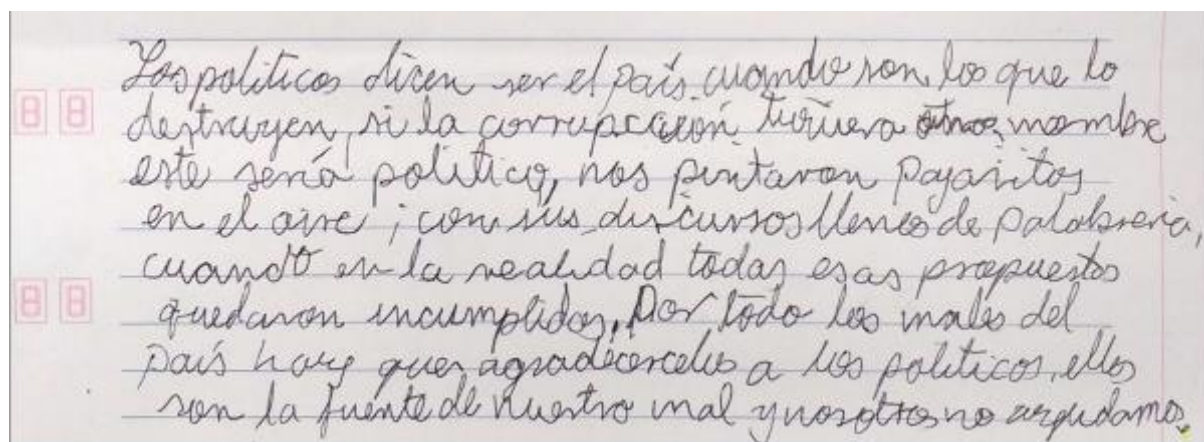 Los politicos dicen ser el país cuando son los que lo
destruyen, si la corrupcción tuviera nombre
este sería politico, nos pintaron pajaritos
en el aire; con sus discursos llenos de palabreria,
cuando en la realidad todas esas propuestas
quedaron incumplidas. Por todo los males del
país hay que agradecercelos a los politicos, ellos
son la fuente de nuestro mal y nosotros no ayudamos.